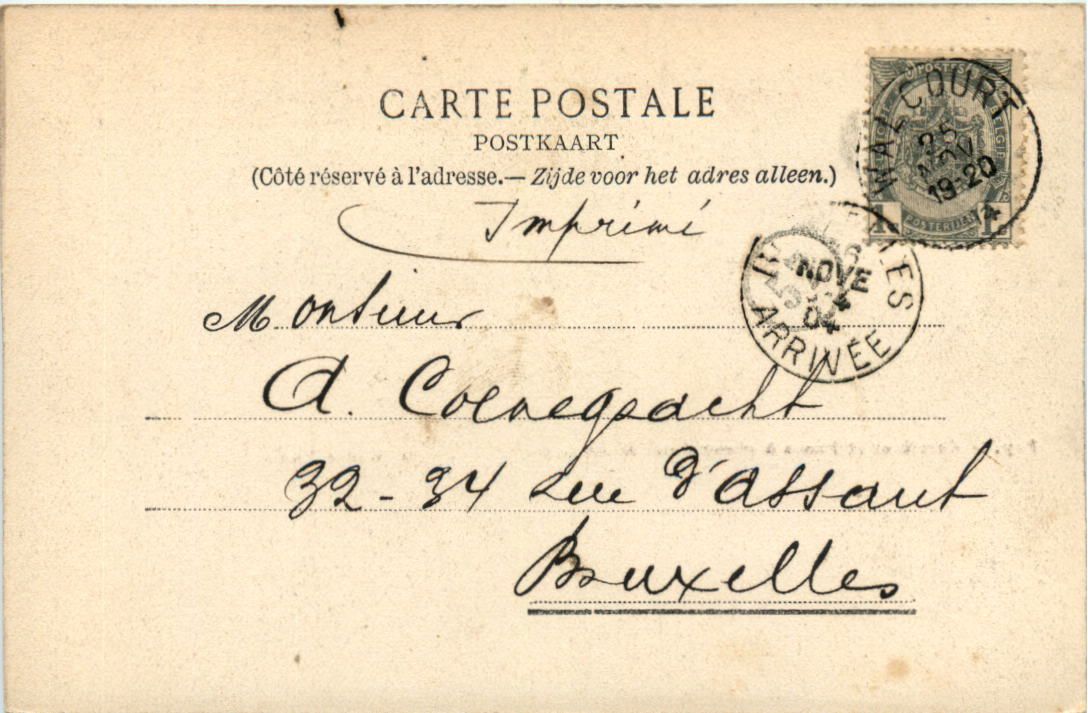 CARTE POSTALE
POSTKAART
(Côté réservé à l'adresse.— Zijde voor het adres alleen.)
Imprimé
WALCOURT
25
NOV
19-20
4
1 POSTERIJEN 1
BRUXELLES
6
NOVE
04
ARRIVÉE
Monsieur
A.
32-34 Rue d'Assaut
Bruxelles